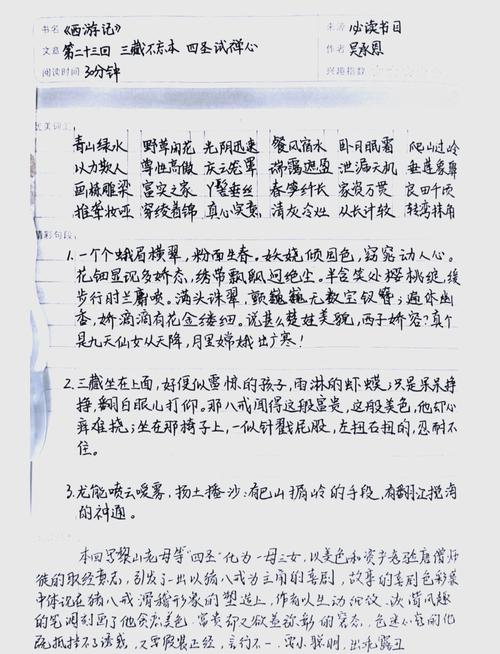 书名《西游记》 来源 必读书目
文章 第二十三回 三藏不忘本 四圣试禅心 作者 吴承恩
阅读时间 30分钟 兴趣指数
优美词汇
青山绿水 野草闲花 光阴迅速 餐风宿水 卧月眠霜 爬山过岭
以力欺人 尊性高傲 庆云笼罩 瑞霭遮盈 泄漏天机 垂莲象鼻
画栋雕梁 富实之家 丫髻垂丝 春笋纤长 家资万贯 良田千顷
推聋妆哑 穿绫着锦 真心实意 清灰冷灶 从长计较 转弯抹角
精彩句段
1.一个个蛾眉横翠,粉面生春。妖娆倾国色,窈窕动人心。
花钿显现多娇态,绣带飘飖迥绝尘。半含笑处樱桃绽,缓
步行时兰麝喷。满头珠翠,颤巍巍无数宝钗簪;遍体幽
香,娇滴滴有花金缕细。说甚么楚娃美貌,西子娇容?真个
是九天仙女从天降,月里嫦娥出广寒!
2.三藏坐在上面,好便似雷惊的孩子,雨淋的虾蟆;只是呆呆挣
挣,翻白眼儿打仰。那八戒闻得这般富贵,这般美色,他却心
痒难挠;坐在那椅子上,一似针戳屁股,左扭右扭的,忍耐不
住。
3.龙能喷云嗳雾,扬土播沙:有巴山捎岭的手段,有翻江搅海
的神通。
本回写黎山老母等“四圣”化为一母三女,以美色和资产考验唐僧师
徒的取经意志,引发了一出以猪八戒为主角的喜剧,故事的喜剧色彩集
中体现在猪八戒滑稽形象的塑造上,作者以生动细致、诙谐风趣
的笔调刻画了他贪恋美色、富贵却又欲盖弥彰的窘态,色迷心窍的他
既抵挡不了诱惑,又要假装正经,言行不一,耍小聪明,出乖露丑